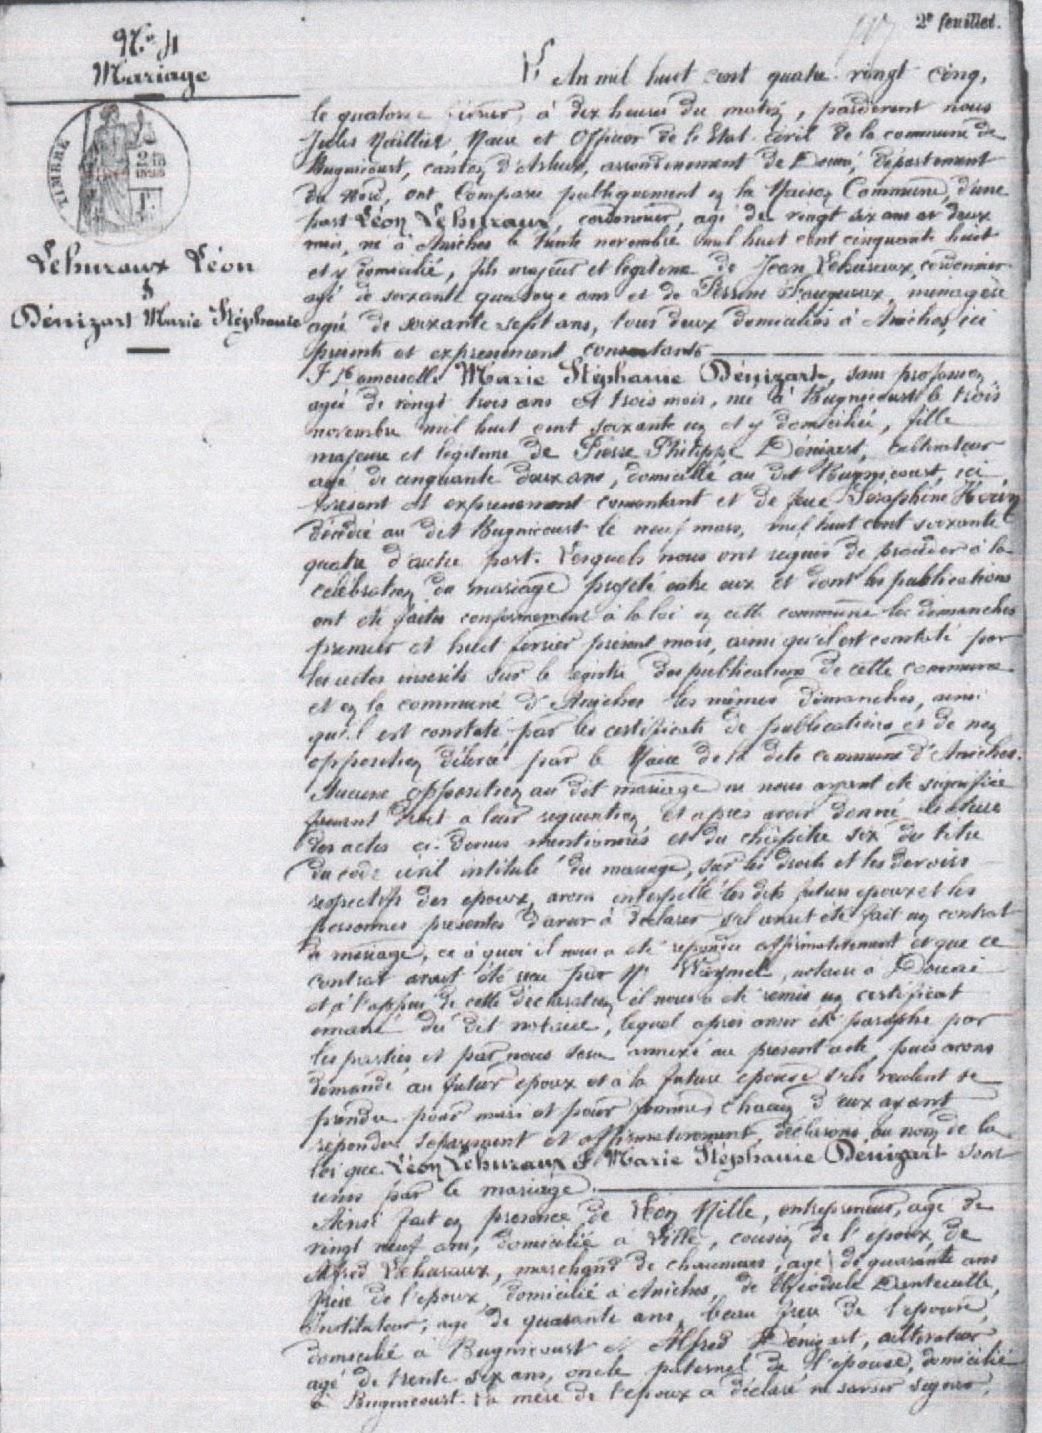 2e feuillet.
No 4
Mariage
TIMBRE
Lehuraux Léon
&
Dénizart Marie Stéphanie
L'An mil huit cent quatre vingt cinq,
le quatorze février, à dix heures du matin, pardevant nous
Jules Maire et Officier de l'Etat civil de la commune de
Bugnicourt, canton d'Arleux, arrondissement de Douai, département
du Nord, ont comparu publiquement en la Maison Commune, d'une
part Léon Lehuraux, cordonnier, agé de vingt six ans et deux
mois, né à Aniches le trente novembre mil huit cent cinquante huit
et y domicilié, fils majeur et légitime de Jean Lehuraux, cordonnier
agé de soixante quatorze ans et de ménagère
agée de soixante sept ans, tous deux domiciliés à Aniches, ici
présents et expressément consentants
& Demoiselle Marie Stéphanie Dénizart, sans profession
agée de vingt trois ans et trois mois, née à Bugnicourt le trois
novembre mil huit cent soixante un et y domiciliée, fille
majeure et légitime de Pierre Philippe Dénizart, cultivateur
agé de cinquante deux ans, domicilié au dit Bugnicourt, ici
présent et expressément consentant et de feue Séraphine
décédée au dit Bugnicourt le neuf mars, mil huit cent soixante
quatre d'autre part. Lesquels nous ont requis de procéder à la
célébration du mariage projeté entre eux et dont les publications
ont été faites conformément à la loi en cette commune les dimanches
premier et huit février présent mois, ainsi qu'il est constaté par
les actes inscrits sur le registre des publications de cette commune
et en la commune d'Aniches les mêmes dimanches, ainsi
qu'il est constaté par les certificats de publications et de non
opposition délivré par le Maire de la dite commune d'Aniches.
Aucune opposition au dit mariage ne nous ayant été signifiée
faisant droit à leur réquisition et après avoir donné lecture
des actes ci-dessus mentionnés et du chapitre six du titre
du code civil intitulé du mariage, sur les droits et les devoirs
respectifs des époux, avons interpellé les dits futurs époux et les
personnes présentes d'avoir à déclarer s'il avait été fait un contrat
de mariage, ce à quoi il nous a été répondu affirmativement et que ce
contrat avait été reçu par Me notaire à Douai
et à l'appui de cette déclaration il nous a été remis un certificat
émané du dit notaire, lequel après avoir été paraphé par
les parties et par nous sera annexé au présent acte, puis avons
demandé au futur époux et à la future épouse s'ils veulent se
prendre pour mari et pour femme, chacun d'eux ayant
répondu séparément et affirmativement, déclarons au nom de la
loi que Léon Lehuraux & Marie Stéphanie Dénizart sont
unis par le mariage.
Ainsi fait en présence de Léon Mille, entrepreneur, agé de
vingt neuf ans, domicilié à Lille, cousin de l'époux, de
Alfred Lehuraux, marchand de chaussures, agé de quarante ans
frère de l'époux, domicilié à Aniches, de Théodule
Instituteur, agé de quarante ans, beau frère de l'épouse,
domicilié à Bugnicourt et Alfred Dénizart, cultivateur
agé de trente six ans, oncle paternel de l'épouse, domicilié
à Bugnicourt. La mère de l'époux a déclaré ne savoir signer,